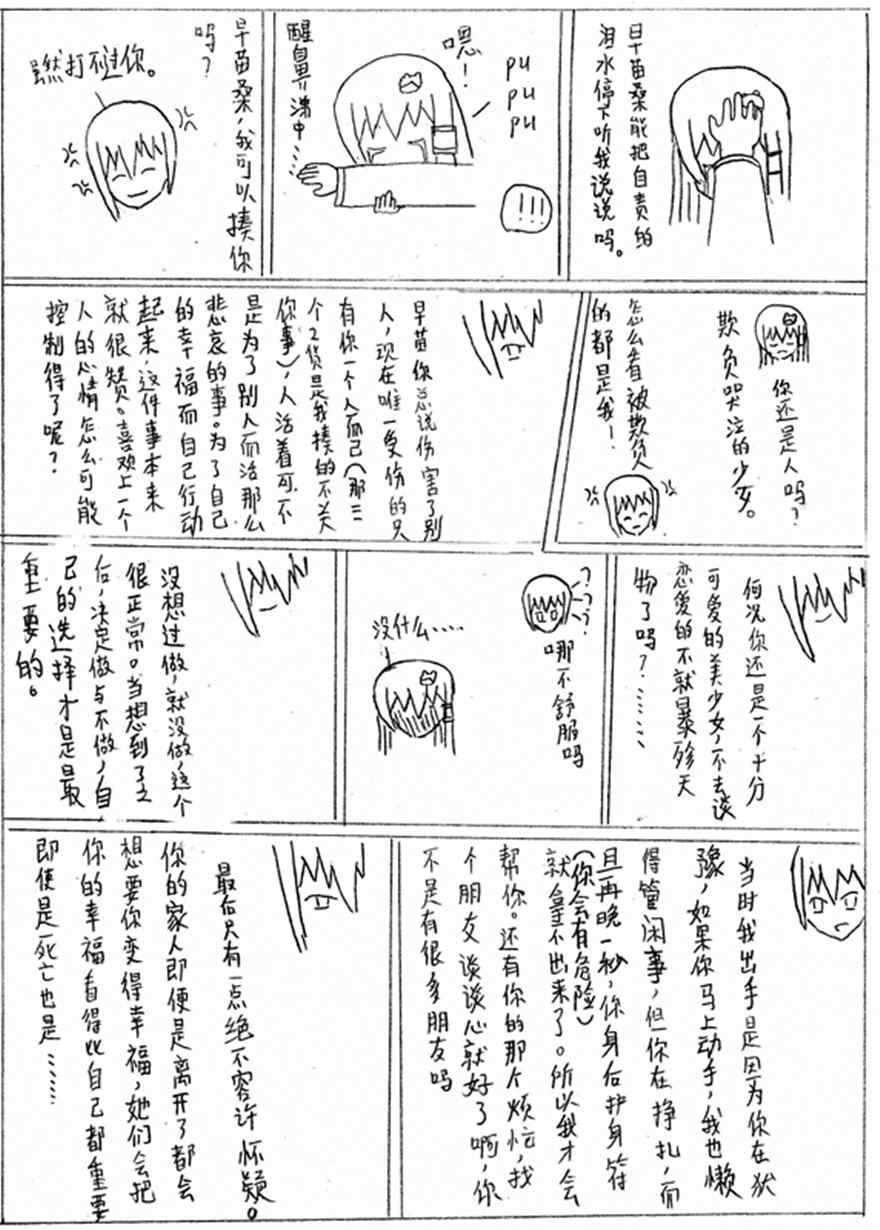 早苗桑能把自责的
泪水停下听我说说吗。
pu
pu
pu
嗯！
!!!
醒鼻涕中……
早苗桑，我可以揍你
吗？
虽然打不过你。
你还是人吗？
欺负哭泣的少女。
怎么看被欺负
的都是我！
早苗你总说伤害了别
人，现在唯一受伤的只
有你一个人而已（那三
个2货是我揍的不关
你事），人活着可不
是为了别人而活那么
悲哀的事。为了自己
的幸福而自己行动
起来，这件事本来
就很赞。喜欢上一个
人的心情怎么可能
控制得了呢？
何况你还是一个十分
可爱的美少女，不去谈
恋爱的不就暴殄天
物了吗？………
???
哪不舒服吗
没什么……
没想过做，就没做，这个
很正常。当想到了之
后，决定做与不做，自
己的选择才是最
重要的。
当时我出手是因为你在犹
豫，如果你马上动手，我也懒
得管闲事，但你在挣扎，而
且再晚一秒，你身后护身符
（你会有危险）
就拿不出来了。所以我才会
帮你。还有你的那个烦恼，找
个朋友谈谈心就好了啊，你
不是有很多朋友吗
最后只有一点绝不容许怀疑。
你的家人即便是离开了都会
想要你变得幸福，她们会把
你的幸福看得比自己都重要
即使是死亡也是……